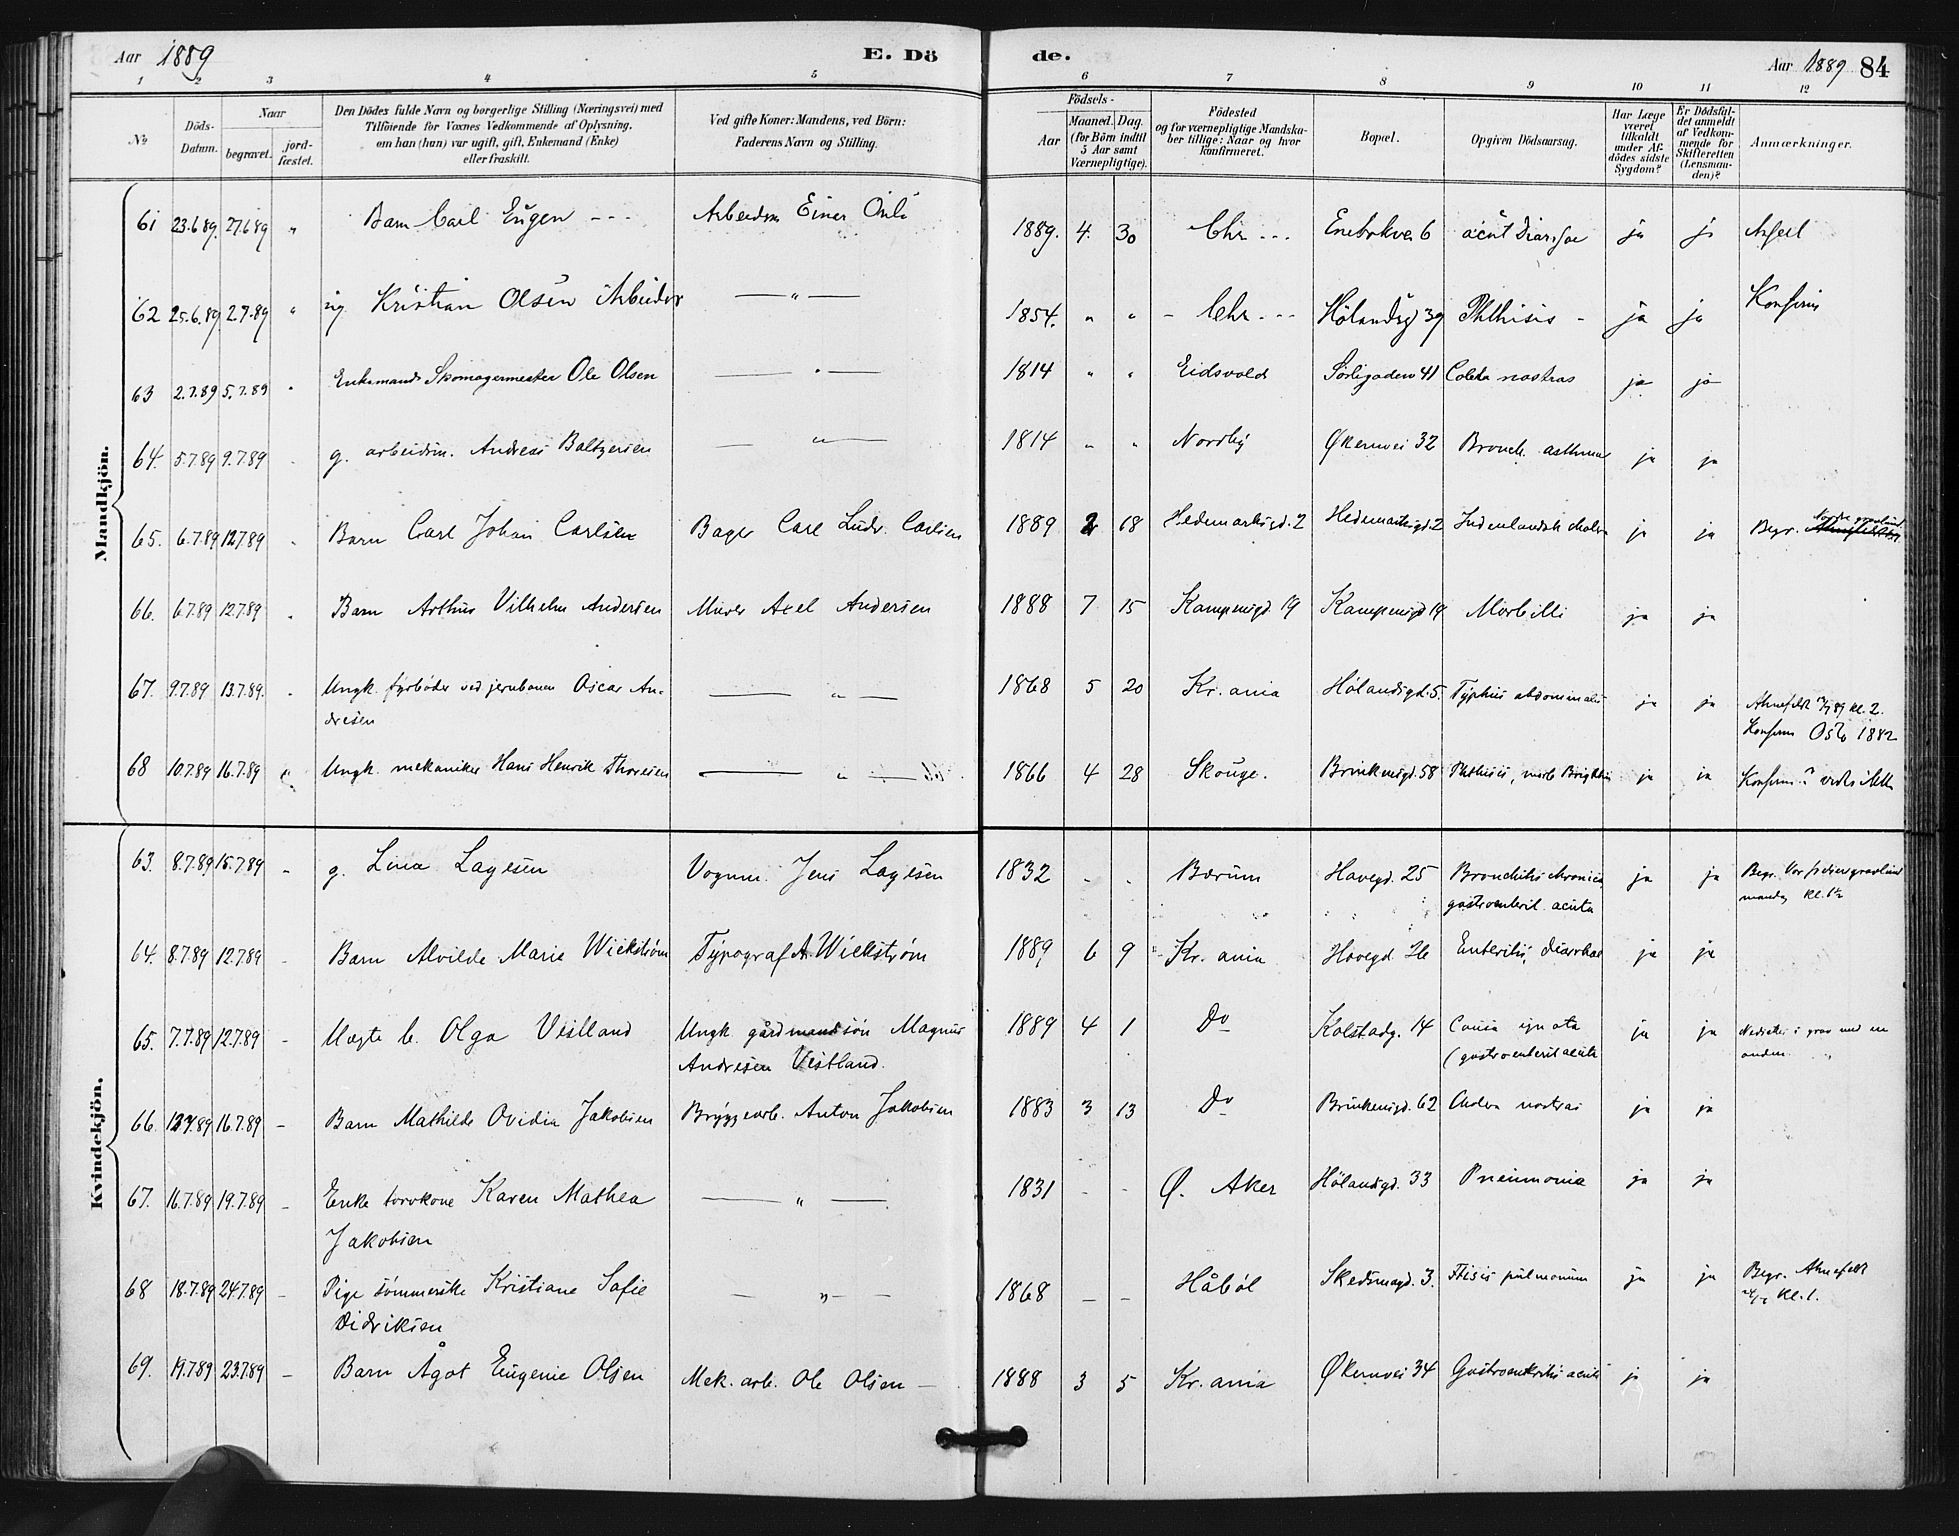 Aar 1889
E. Dö de.
Aar 1889 84
1 2 3 4 5 6 7 8 9 10 11 12
№
Döds-
Datum.
Naar
begravet.
jord-
fæstet.
Den Dödes fulde Navn og borgerlige Stilling (Næringsvei) med
Tilföiende for Voxnes Vedkommende af Oplysning,
om han (hun) var ugift, gift, Enkemand (Enke)
eller fraskilt.
Ved gifte Koner: Mandens, ved Börn:
Faderens Navn og Stilling.
Födsels-
Aar
Maaned. Dag.
(for Börn indtil
5 Aar samt
Værnepligtige).
Födested
og for værnepligtige Mandska-
ber tillige: Naar og hvor
konfirmeret.
Bopæl.
Opgiven Dödsaarsag.
Har Læge
været
tilkaldt
under Af-
dödes sidste
Sygdom?
Er Dödsfal-
det anmeldt
af Vedkom-
mende for
Skifteretten
(Lensman-
den)?
Anmærkninger.
Mandkjön.
61 23.6.89. 27.6.89 " Barn Carl Eugen - - - Arbeidsm Einer 1889. 4. 30 Chr... 6 acut ja ja
62 25.6.89 2.7.89 " ug. Kristian Olsen Arbeider — " — 1854. " " - Chr... Hölandsg 39 Phthisis - ja ja Konfirm
63 2.7.89 5.7.89 " Enkemand Skomagermester Ole Olsen — " — 1814 " " Eidsvold Sörligaden 41 nostras ja ja
64. 5.7.89 9.7.89 g. arbeidsm. Andreas Baltzersen — " — 1814 " " Nordby Økernvei 32 Bronch. asthma ja ja
65. 6.7.89 12.7.89 Barn Carl Johan Carlsen Bager Carl Ludv. Carlsen 1889 2 18 Hedemarksgd. 2 Hedemarksgd. 2 Indenlandsk cholera ja ja Begr. Nordre gravlund
66. 6.7.89 12.7.89 Barn Arthur Vilhelm Andersen Murer Axel Andersen 1888 7 15 Kampensgd. 19 Kampensgd 19 Morbilli ja ja
67. 9.7.89 13.7.89. Ungk. fyrbøder ved jernbanen Oscar An-
dresen — " — 1868 5 20 Kr.ania Hølandsgd. 5. Typhus abdominalis ja ja Ahnefeldt kl. 2.
Konfirm Oslo 1882
68 10.7.89 16.7.89 Ungk. mekaniker Hans Henrik Thoresen — " — 1866 4 28 Skouge. Brinkensgd. 58 Phthisis, morb Brightii ja ja Konfirm?
Kvindekjön.
63. 8.7.89 15.7.89 - g. Lina Lagesen Vognm. Jens Lagesen 1832 - - Bærum Havegd. 25 Bronchitis chronica
gastroenterit. acuta ja ja Begr. Vor frelsers gravlund
mandag kl. 6½
64. 8.7.89 12.7.89 - Barn Alvilde Marie Wickstrøm Typograf A. Wickstrøm 1889 6 9 Kr.ania Havegd 26 Enteritis, diarrhoe ja ja
65. 7.7.89 12.7.89 - Uægte b. Olga Vestland Ungk. gårdmandsøn Magnus
Andresen Vestland. 1889 4 1 Do Kolstadg. 14 Causa ignota
(gastroenterit acuta ja ja Nedsættes i grav med en
anden
66. 13.7.89 16.7.89 - Barn Mathilde Ovidia Jakobsen Bryggearb. Anton Jakobsen 1883 3 13 Do Brinkensgd. 62 Cholera nostras ja ja
67. 16.7.89 19.7.89 - Enke torvkone Karen Mathea
Jakobsen — " — 1831 - - Ø. Aker Hölandsgd. 33 Pneumonia ja ja
68 18.7.89 24.7.89 - Pige sømmerske Kristiane Sofie
Didriksen — " — 1868 - - Håbøl Skedsmogd. 3. Ftisis pulmonum ja ja Begr. Ahnefeldt
kl. 1.
69. 19.7.89 23.7.89 - Barn Ågot Eugenie Olsen Mek. arb. Ole Olsen — 1888 3 5 Kr.ania Økernvei 34 Gastroenteritis acuta ja ja